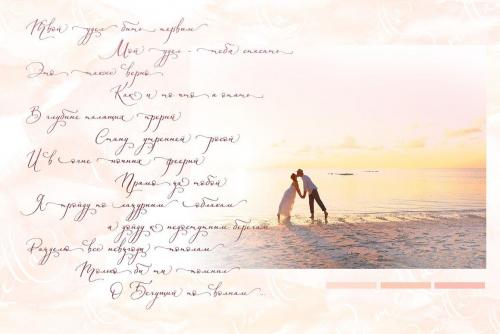 Твой удел быть первым
Мой удел - тебя спасать
Это также верно
Как и то что я
В глубине палящих прерий
Стану утренней росой
И в огне ночных феерий
Прямо за тобой
Я пройду по лазурным облакам
а дойду к недоступным берегам
Разделю все невзгоды пополам
Только бы ты помнил
О Бегущий по волнам ...